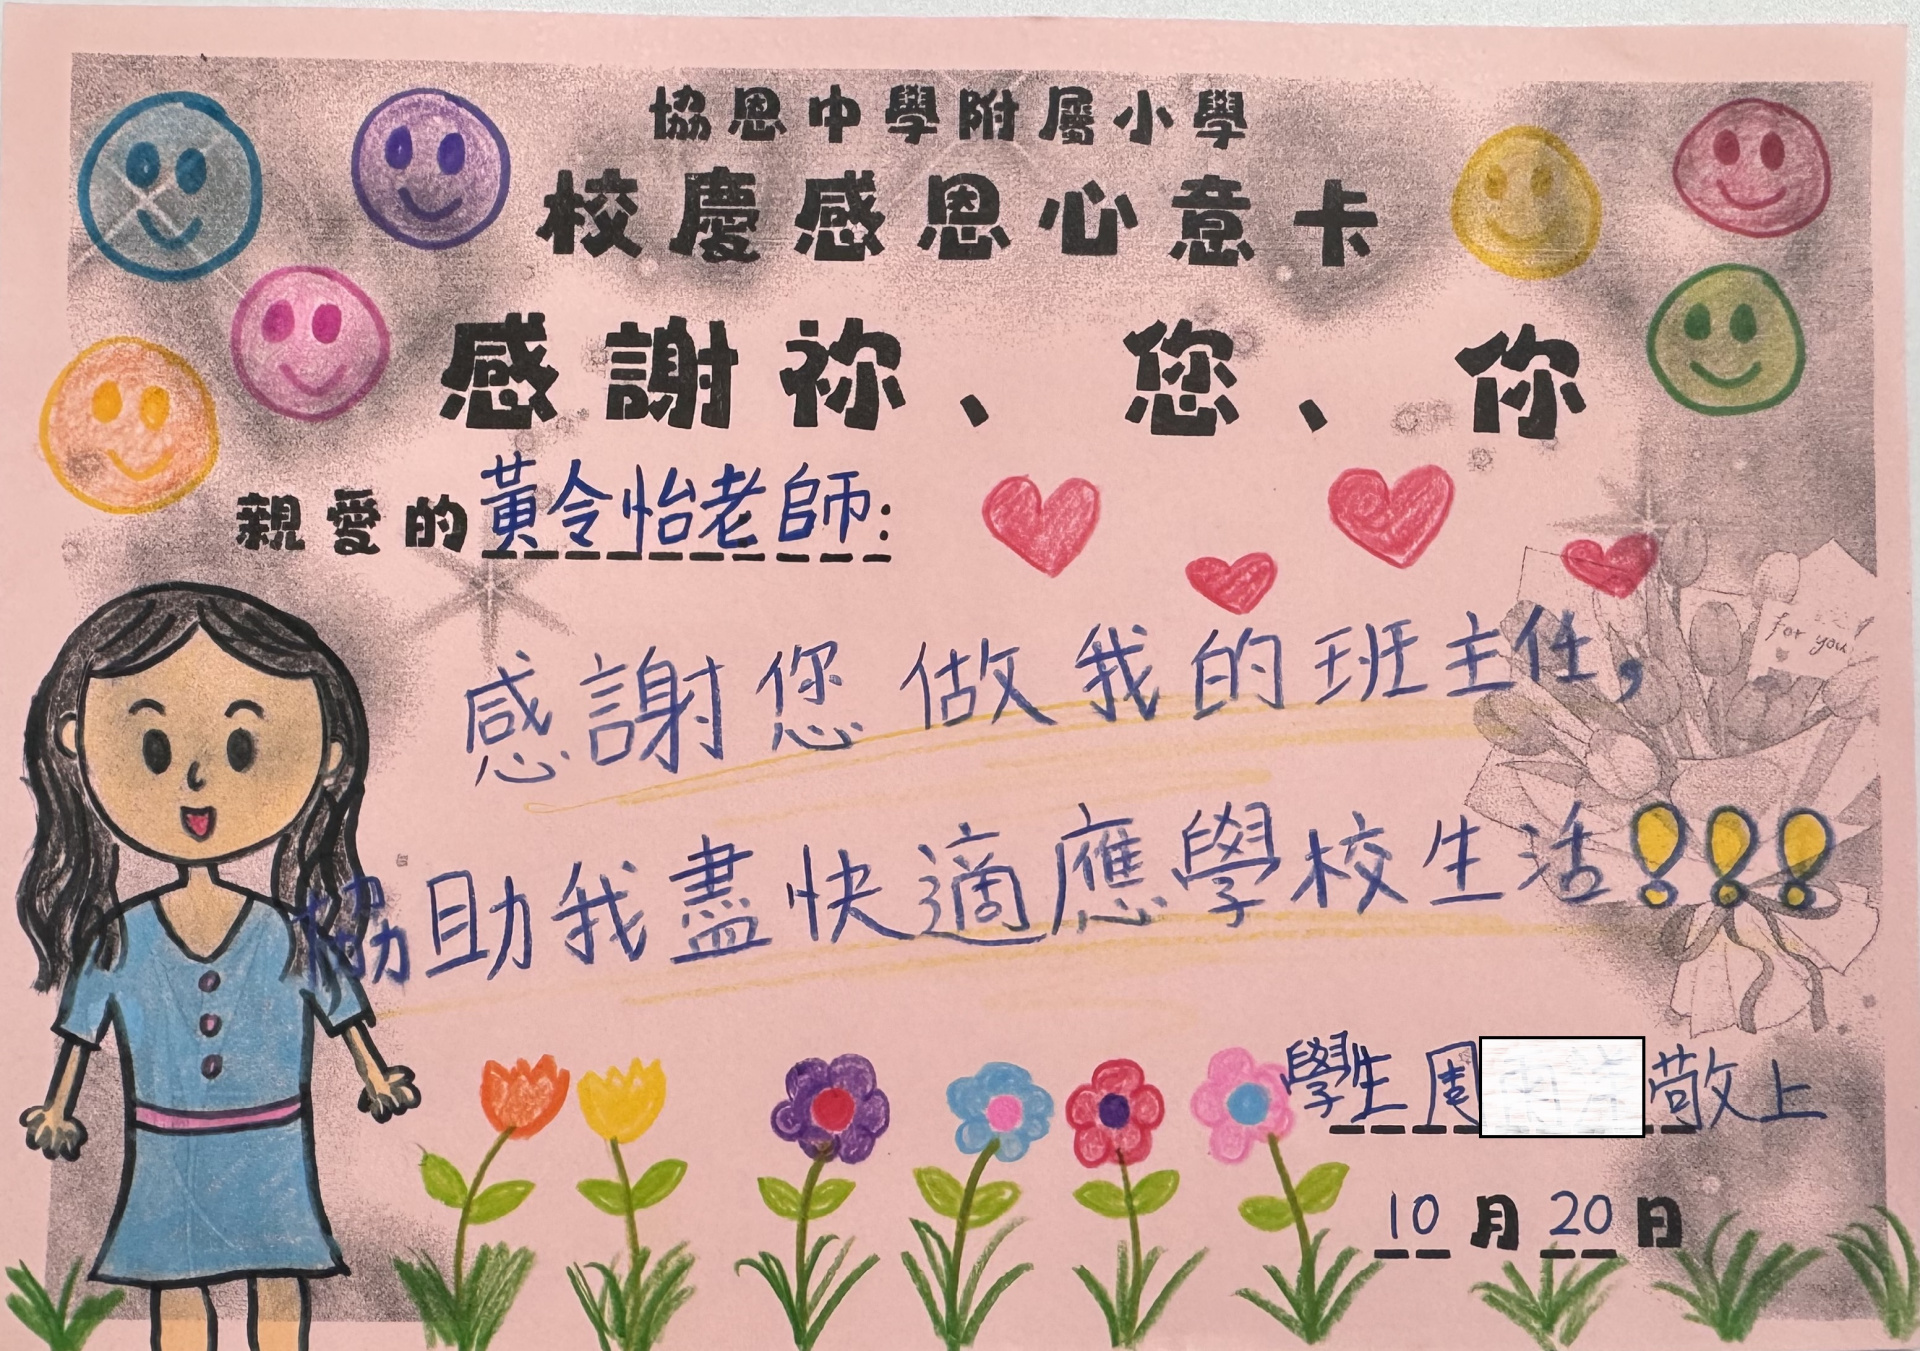 協恩中學附屬小學
校慶感恩心意卡
感謝祢、您、你
親愛的黃令怡老師:
for you
感謝您做我的班主任,
協助我盡快適應學校生活!!!
學生周 敬上
10月20日